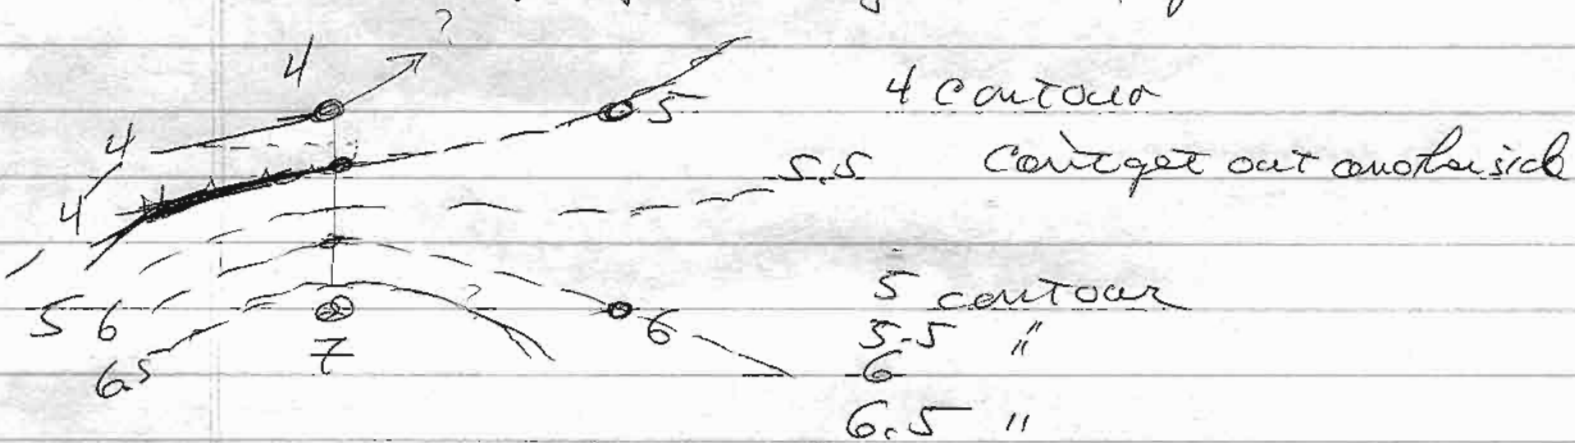 ?
4
5
4 contour
4
5.5
Can't get out another side
4
5 contour
5 6
?
6
5.5 "
7
6.5
6
6.5 "